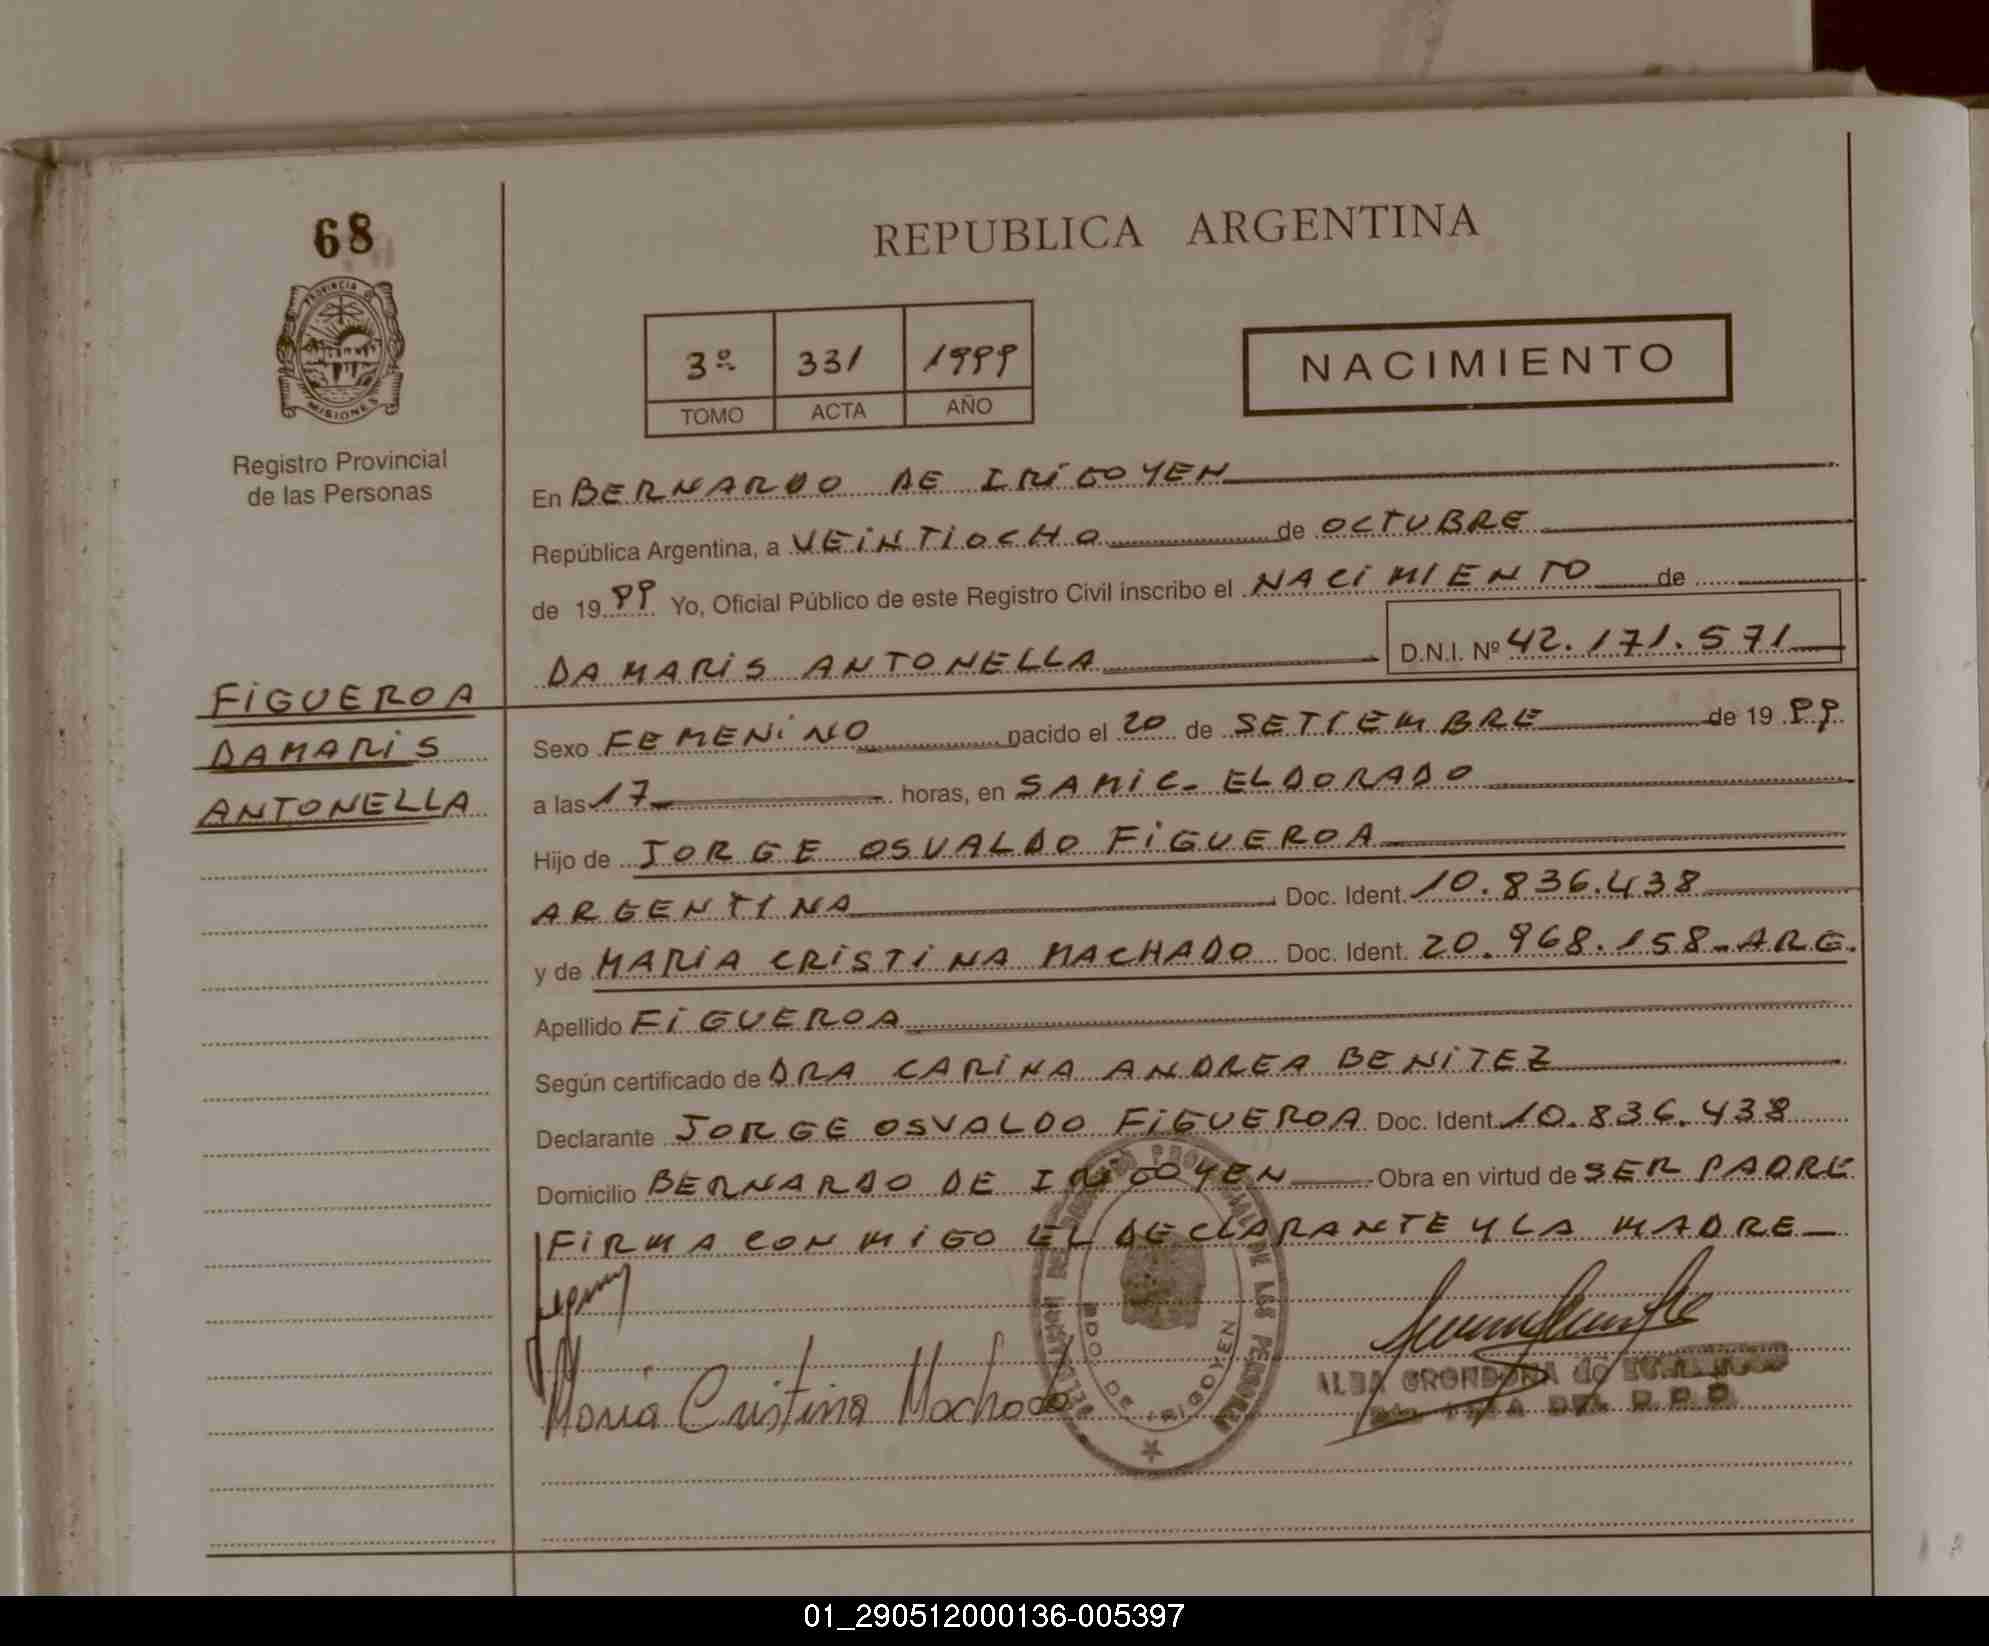 68
REPUBLICA ARGENTINA
PROVINCIA DE
MISIONES
3º 331 1999
TOMO ACTA AÑO
NACIMIENTO
Registro Provincial
de las Personas
En BERNARDO DE IRIGOYEN
República Argentina, a VEINTIOCHO de OCTUBRE
de 1999 Yo, Oficial Público de este Registro Civil inscribo el NACIMIENTO de
DAMARIS ANTONELLA D.N.I. Nº 42.171.571
FIGUEROA
DAMARIS
ANTONELLA
Sexo FEMENINO nacido el 20 de SETIEMBRE de 1999
a las 17 horas, en SAMIC- ELDORADO
Hijo de JORGE OSVALDO FIGUEROA
ARGENTINA Doc. Ident. 10.836.438
y de MARIA CRISTINA MACHADO Doc. Ident. 20.968.158-ARG.
Apellido FIGUEROA
Según certificado de DRA CARINA ANDREA BENITEZ
Declarante JORGE OSVALDO FIGUEROA Doc. Ident. 10.836.438
Domicilio BERNARDO DE IRIGOYEN Obra en virtud de SER PADRE
FIRMA CONMIGO EL DECLARANTE Y LA MADRE
Maria Cristina Machado
PROVINCIAL DE LAS PERSONAS
BDO. DE IRIGOYEN
ALBA GRONDONA de
01_290512000136-005397